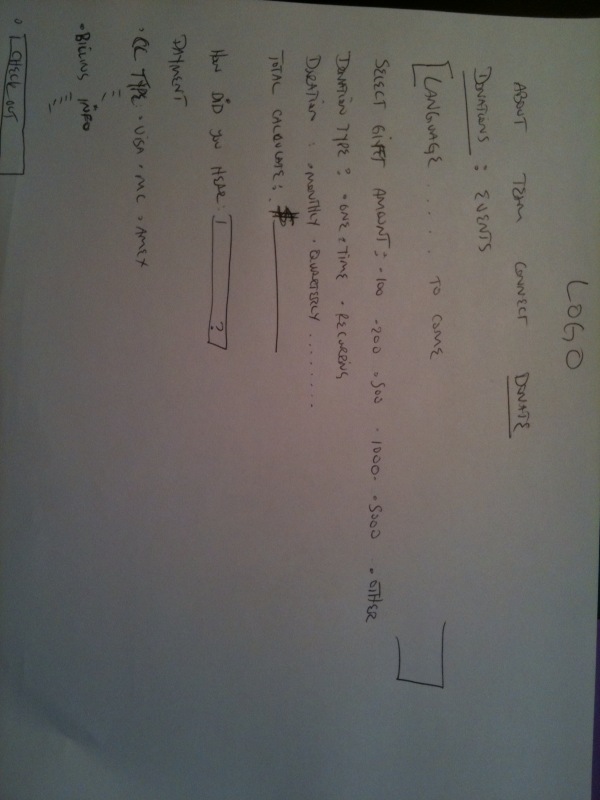 LOGO
ABOUT TEAM CONNECT DONATE
DONATIONS : EVENTS
[LANGUAGE ..... TO COME
SELECT GIFT AMOUNT: •100 •200 •500 •1000 •5000 •OTHER
DONATION TYPE: •ONE-TIME •RECURRING
DURATION: •MONTHLY •QUARTERLY ........
TOTAL CALCULATE: $
HOW DID YOU HERE: ?
PAYMENT
•CC TYPE •VISA •MC •AMEX
•BILLING INFO
•CHECK OUT